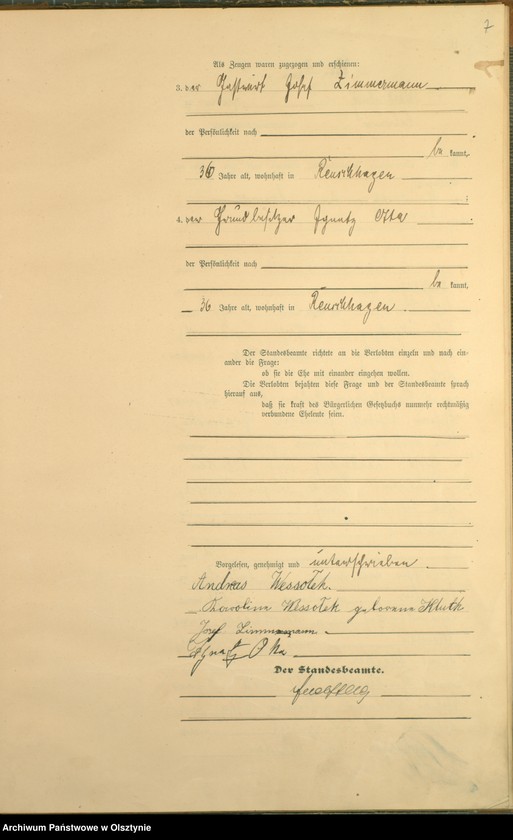 7
Als Zeugen waren zugezogen und erschienen:
3. der Gastwirt Josef Zimmermann
der Persönlichkeit nach
be kannt,
36 Jahre alt, wohnhaft in Reuschhagen
;
4. der Grundbesitzer Ignatz Otta
der Persönlichkeit nach
be kannt,
36 Jahre alt, wohnhaft in Reuschhagen.
Der Standesbeamte richtete an die Verlobten einzeln und nach ein-
ander die Frage:
ob sie die Ehe mit einander eingehen wollen.
Die Verlobten bejahten diese Frage und der Standesbeamte sprach
hierauf aus,
daß sie kraft des Bürgerlichen Gesetzbuchs nunmehr rechtmäßig
verbundene Eheleute seien.
Vorgelesen, genehmigt und unterschrieben
Andreas Wessołek.
Karoline Wessołek geborene Kluth
Josef Zimmermann
Ignatz
Der Standesbeamte.
Archiwum Państwowe w Olsztynie